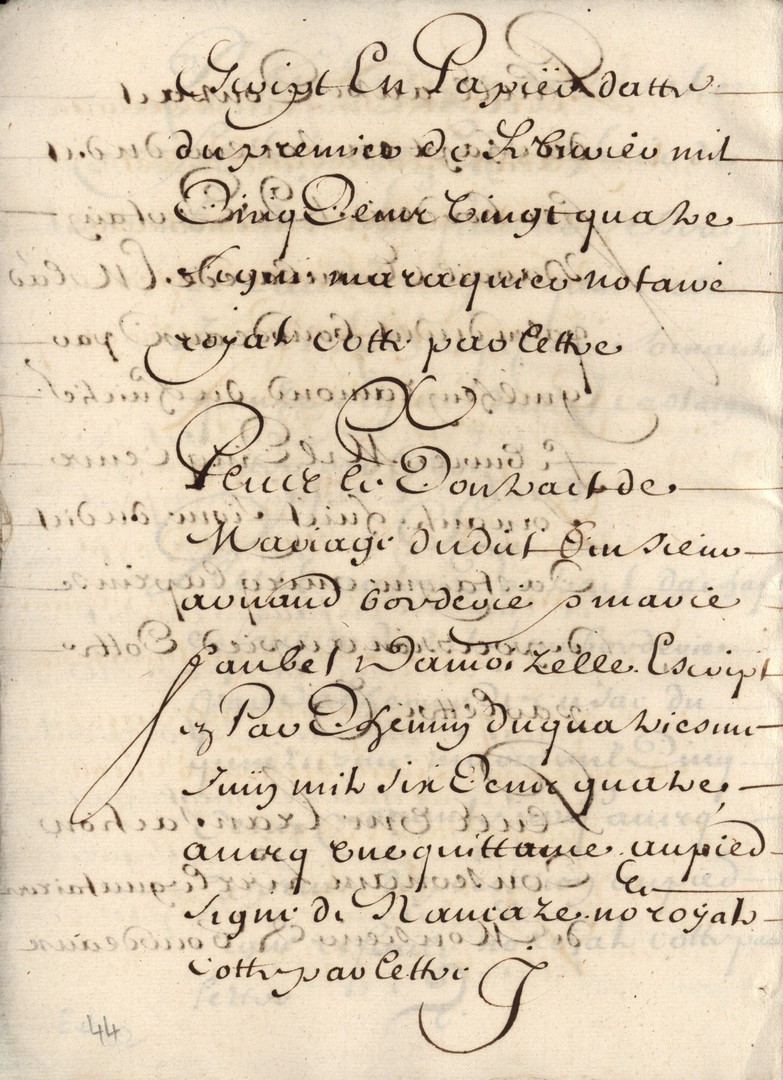 Escript En Papier datte
du premier de febvrier mil
Cinq Cens vingt quatre
signé maraquier notaire
royal cotté par lettre
Plus le Contract de
Mariage dudit Sieur
arnaud borderie &
Jaubel Damoizelle Escript
Par du quatriesme
Juin mil six Cens quatre
avecq une quittance au pied
signé de Rancaze no.re royal
cotté par lettre J
44